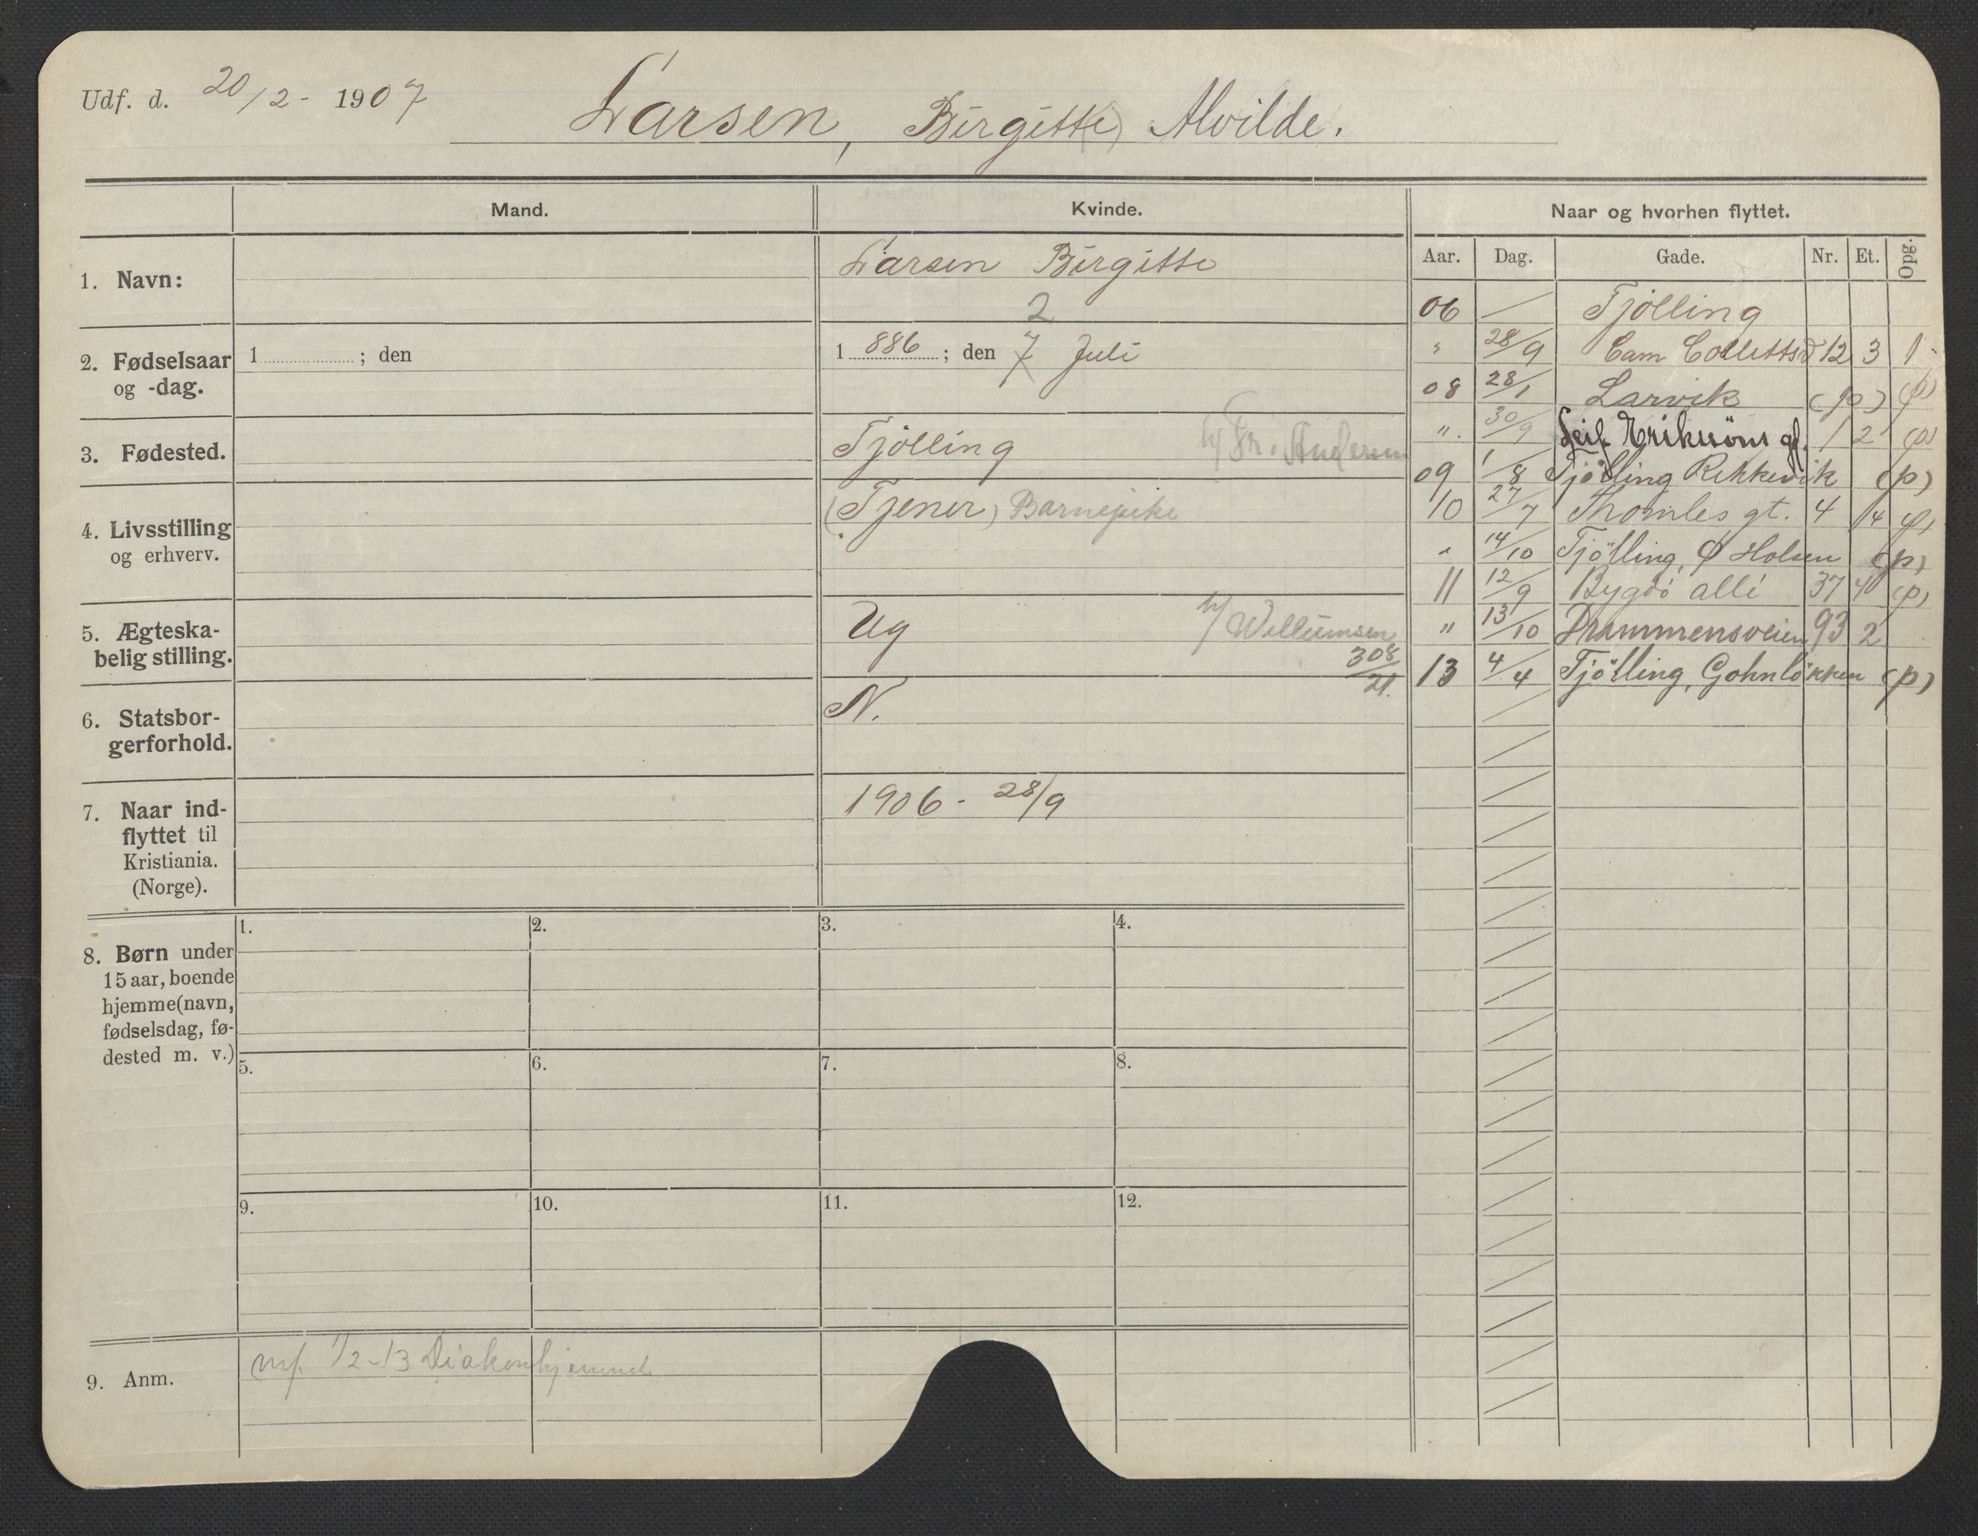 Udf. d. 20/2 - 1907
Larsen, Birgitt(e) Alvilde.
Mand. Kvinde. Naar og hvorhen flyttet.
Aar. Dag. Gade. Nr. Et. Opg.
1. Navn: Larsen Birgitte
2
2. Fødselsaar og -dag.
1 ; den
1 886 ; den 7 Juli
3. Fødested. Tjølling h/ Fr. Andersen
4. Livsstilling og erhverv. (Tjener) Barnepike
5. Ægteska-
belig stilling. Ug h/ Willumsen
308/21.
6. Statsbor-
gerforhold. N.
7. Naar ind-
flyttet til
Kristiania.
(Norge). 1906 - 28/9
06 Tjølling
" 28/9 Cam Colletts 12 3 1
08 28/1 Larvik (p) (p)
". 30/9 Leif Erikssøns gt. 1 2 (p)
09 1/8 Tjølling Rekkevik (p)
10 27/7 Thomles gt. 4 14 (p)
" 14/10 Tjølling, Ø Holsen (p)
11 12/9 Bygdö allé 37 4 (p)
" 13/10 Drammensveien 93 2
13 4/4 Tjølling, Gohnløkken (p)
8. Børn under
15 aar, boende
hjemme (navn,
fødselsdag, fø-
dested m. v.)
1. 2. 3. 4.
5. 6. 7. 8.
9. 10. 11. 12.
9. Anm. mf. 1/2-13 Diakonhjemmet